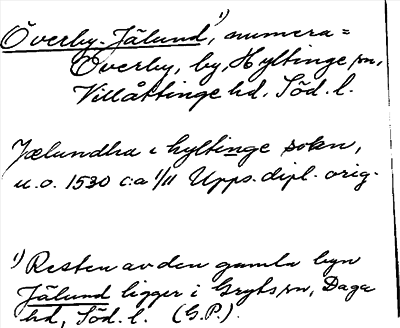 Överby-Jälund,¹⁾ numera =
Överby, by, Hyltinge sn,
Villåttinge hd. Söd. l.
Jælundha i hyltinge sokn,
u.o. 1530 c:a 1/11 Upps. dipl. orig.
¹⁾ Resten av den gamla byn
Jälund ligger i Gryts sn, Daga
hd, Söd. l. (G.P.).